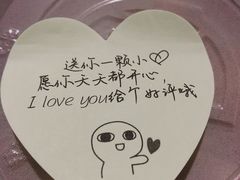 送你一颗小♡
愿你天天都开心,
I love you给个好评哦